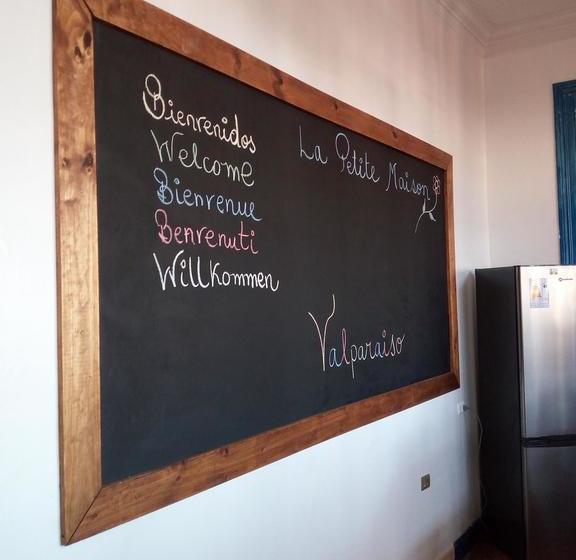 Bienvenidos
Welcome
Bienvenue
Benvenuti
Willkommen
La Petite Maison
Valparaiso